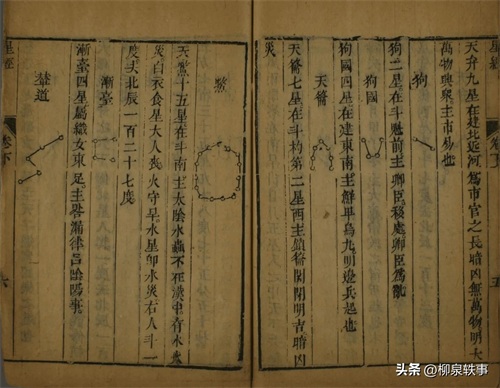 星經
卷下
五
天弁九星在建北近河為市官之長暗凶無萬物明大
萬物興眾主市易也
狗
狗二星在斗魁前主卿臣移處卿臣為亂
狗國
狗國四星在建東南主鮮卑烏丸明邊兵起也
天籥
天籥七星在斗杓第二星西主鎮籥關閉明吉暗凶
災
鱉
天鱉十五星在斗南主太陰水蟲不在漢中有水火
災白衣食星大人喪火守旱水星卯水災右入斗一
度去北辰一百二十七度
漸臺
漸臺四星屬織女東足主晷漏律呂陰陽事
輦道
星經
卷下
六
头条 @柳泉轶事